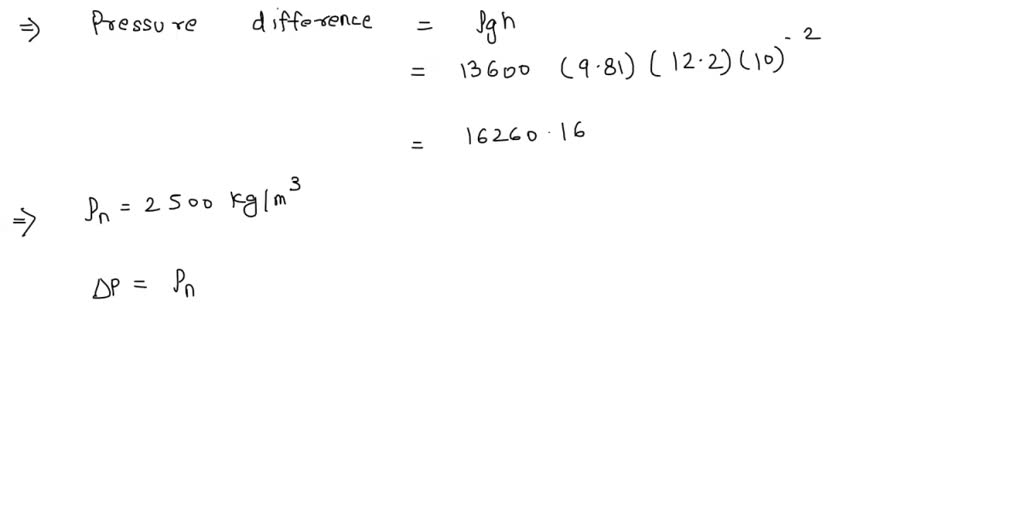 ⇒ Pressure difference = ρgh
= 13600 (9.81) (12.2) (10)⁻²
= 16260.16
⇒ ρₙ = 2500 kg/m³
ΔP = ρₙ